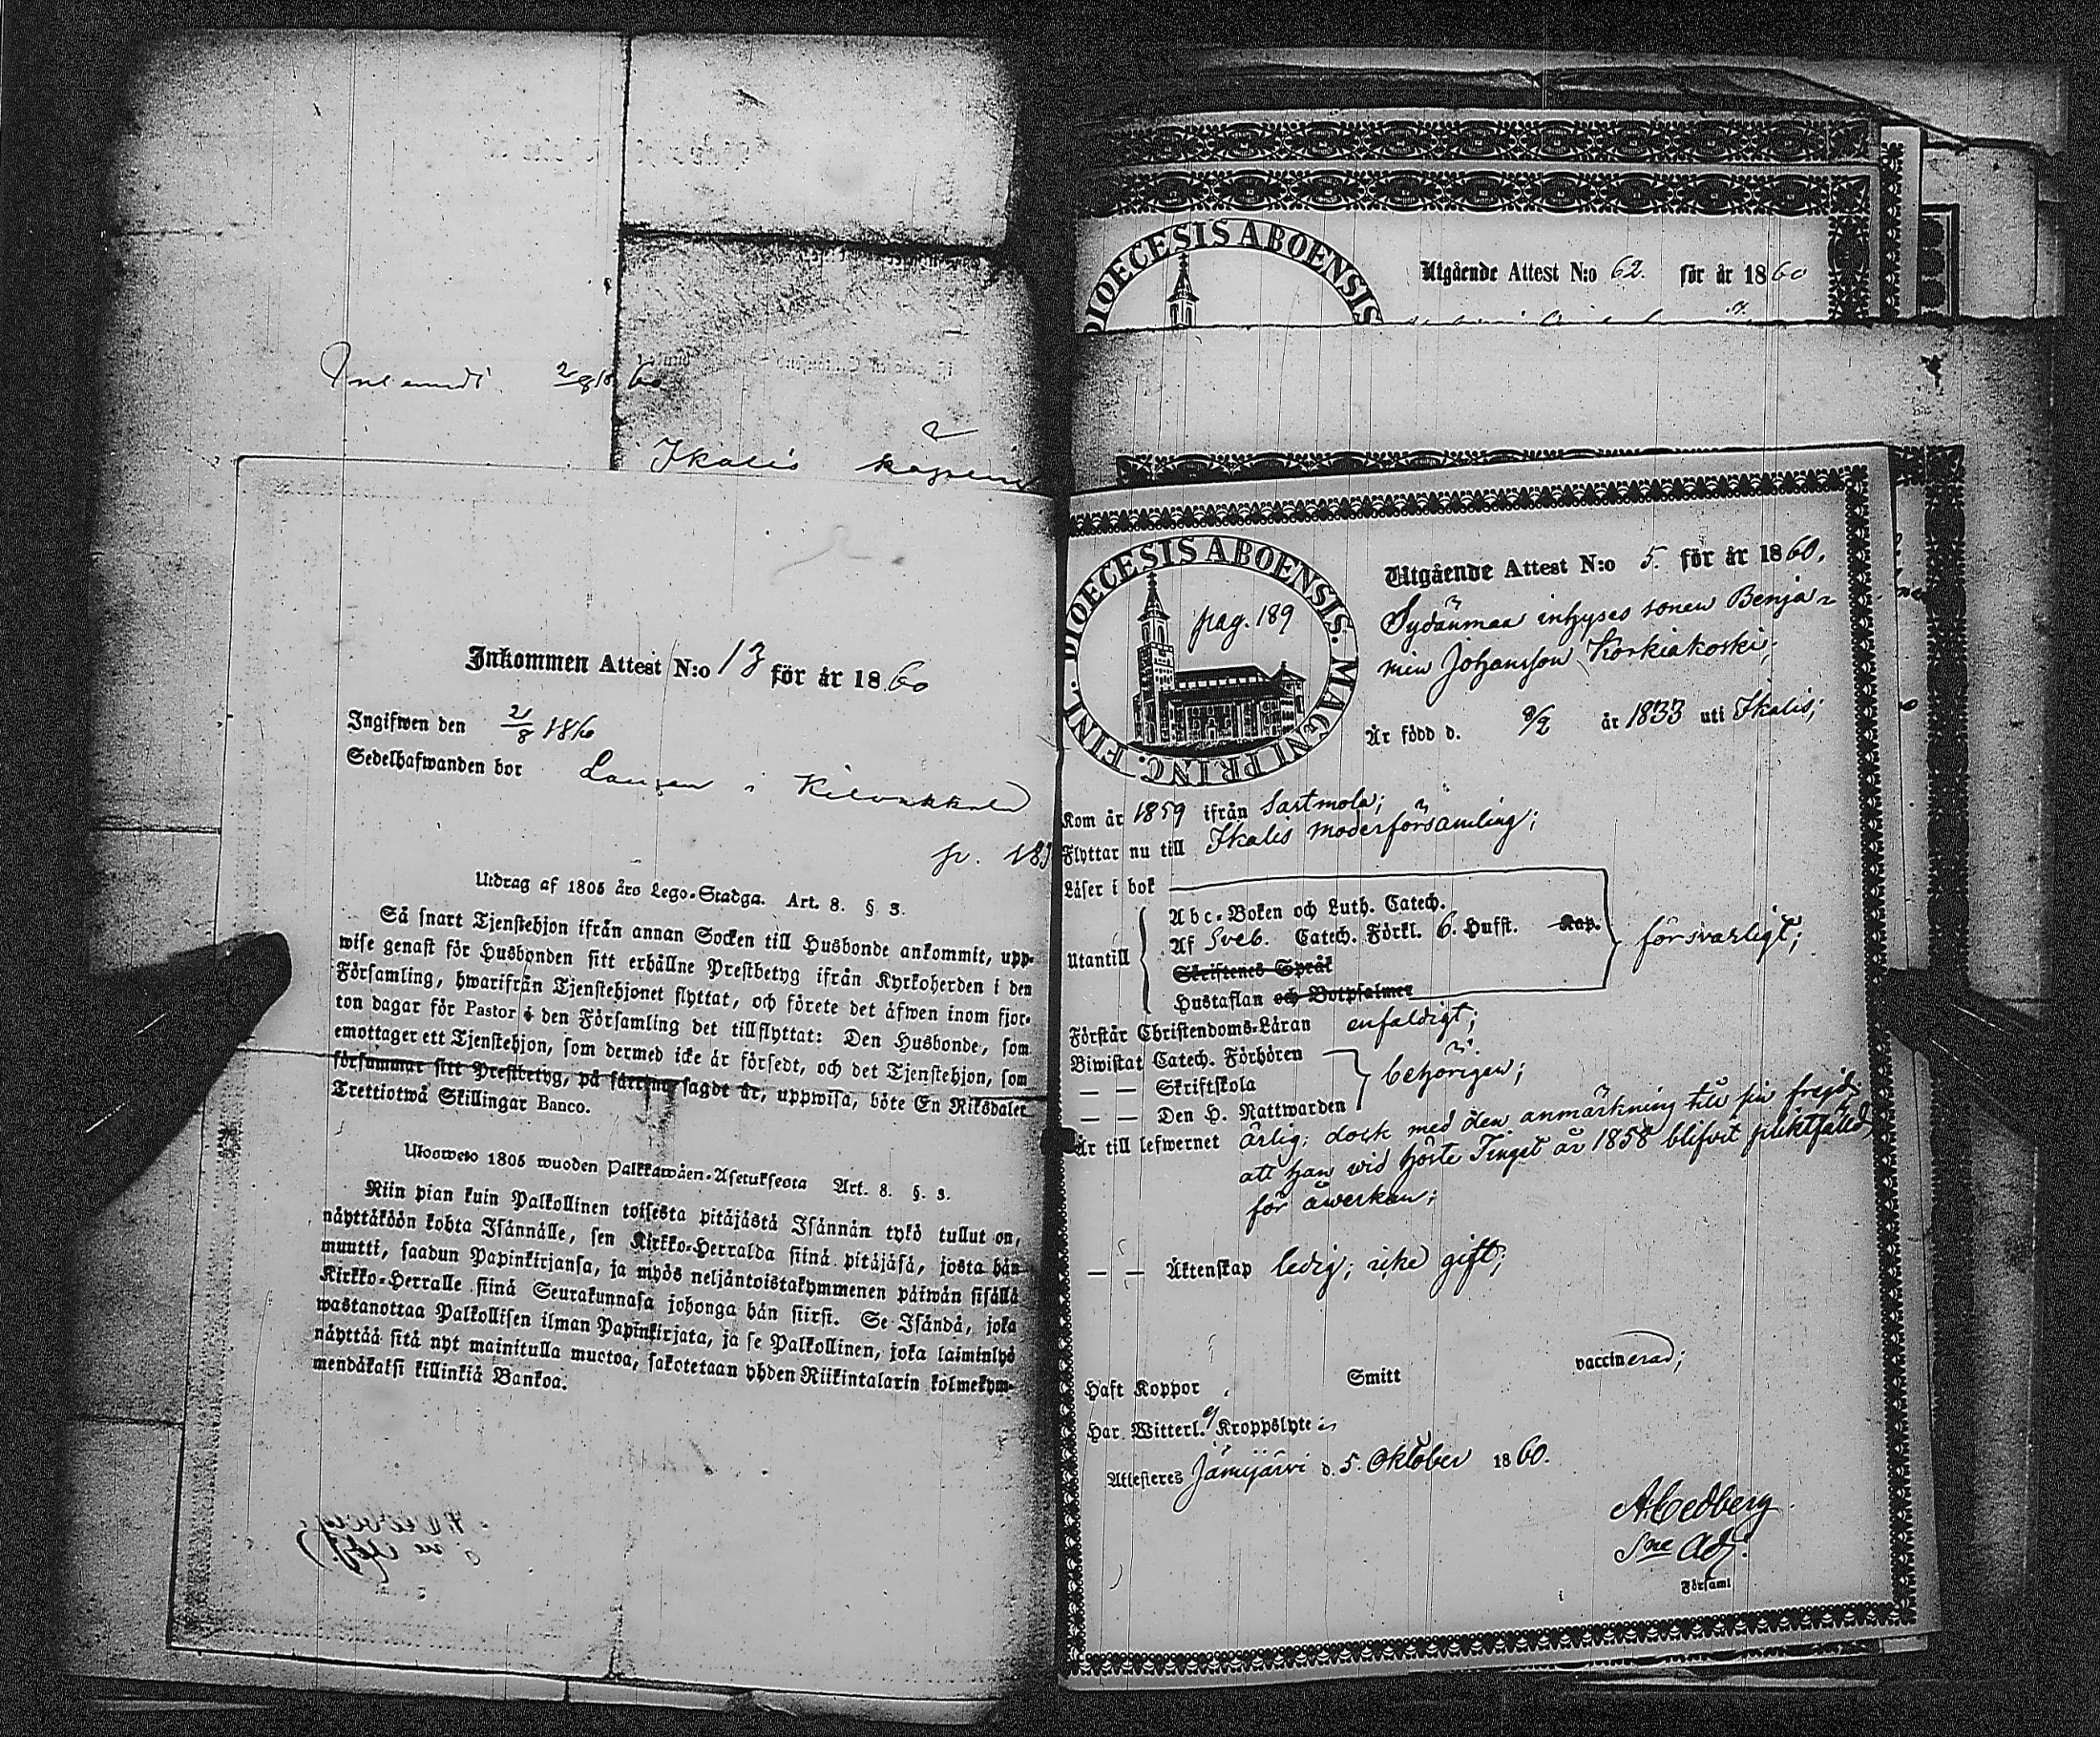 Inlemnadt 2/8 18 60
Ikalis kapell
Inkommen Attest N:o 13 för år 1860
Ingifwen den 2/8 1860
Sedelhafwanden bor
p. 189
Utdrag af 1805 års Lego-Stadga. Art. 8. § 3.
Så snart Tjenstehjon ifrån annan Socken till Husbonde ankommit, upp-
wise genast för Husbonden sitt erhållne Prestbetyg ifrån Kyrkoherden i den
Församling, hwarifrån Tjenstehjonet flyttat, och förete det äfwen inom fjor-
ton dagar för Pastor i den Församling det tillflyttat: Den Husbonde, som
emottager ett Tjenstehjon, som dermed icke är försedt, och det Tjenstehjon, som
försummar sitt Prestbetyg, på sätt nu sagdt är, uppwisa, böte En Riksdaler
Trettiotwå Skillingar Banco.
Ulosweto 1805 wuoden Palkkawäen-Asetuksesta Art. 8. §. 3.
Niin pian kuin Palkollinen toisesta pitäjästä Isännän tykö tullut on,
näyttäköön kohta Isännälle, sen Kirkko-Herralda siinä pitäjäsä, josta hän
muutti, saadun Papinkirjansa, ja myös neljäntoistakymmenen päiwän sisällä
Kirkko-Herralle siinä Seurakunnasa johonga hän siirsi. Se Isändä, joka
wastanottaa Palkollisen ilman Papinkirjata, ja se Palkollinen, joka laiminlyö
näyttää sitä nyt mainitulla muotoa, sakotetaan yhden Riikintalarin kolmekym-
mendäkaksi killinkiä Bankoa.
DIOECESIS ABOENSIS
Utgående Attest N:o 62. för år 1860
DIOECESIS ABOENSIS. MAGNI PRINC. FINL.
pag. 189
Utgående Attest N:o 5. för år 1860,
Sydänmaa inhyses sonen Benja-
min Johansson Korkiakoski;
Är född d. 8/2 år 1833 uti Ikalis;
Kom år 1859 ifrån Sastmola;
Flyttar nu till Ikalis moderförsamling;
Läser i bok
Utantill
Abc-Boken och Luth. Catech.
Af Sveb. Catech. Förkl. 6. Hufst. Kap.
Skriftenes Språk
Hustaflan och Botpsalmer
försvarligt;
Förstår Christendoms-Läran enfaldigt;
Biwistat Catech. Förhören
— — Skriftskola
— — Den H. Nattwarden
behörigen;
Är till lefwernet ärlig; dock med den anmärkning till sin frejd,
att han wid höste Tinget år 1858 blifvit pliktfälld
för åwerkan;
— — Äktenskap ledig; icke gift;
Haft Koppor Smitt vaccinerad;
Har Witterl. ej Kroppslyten
Attesteres Jämijärvi d. 5. Oktober 1860.
A Cedberg
Sne Adj.
Församl